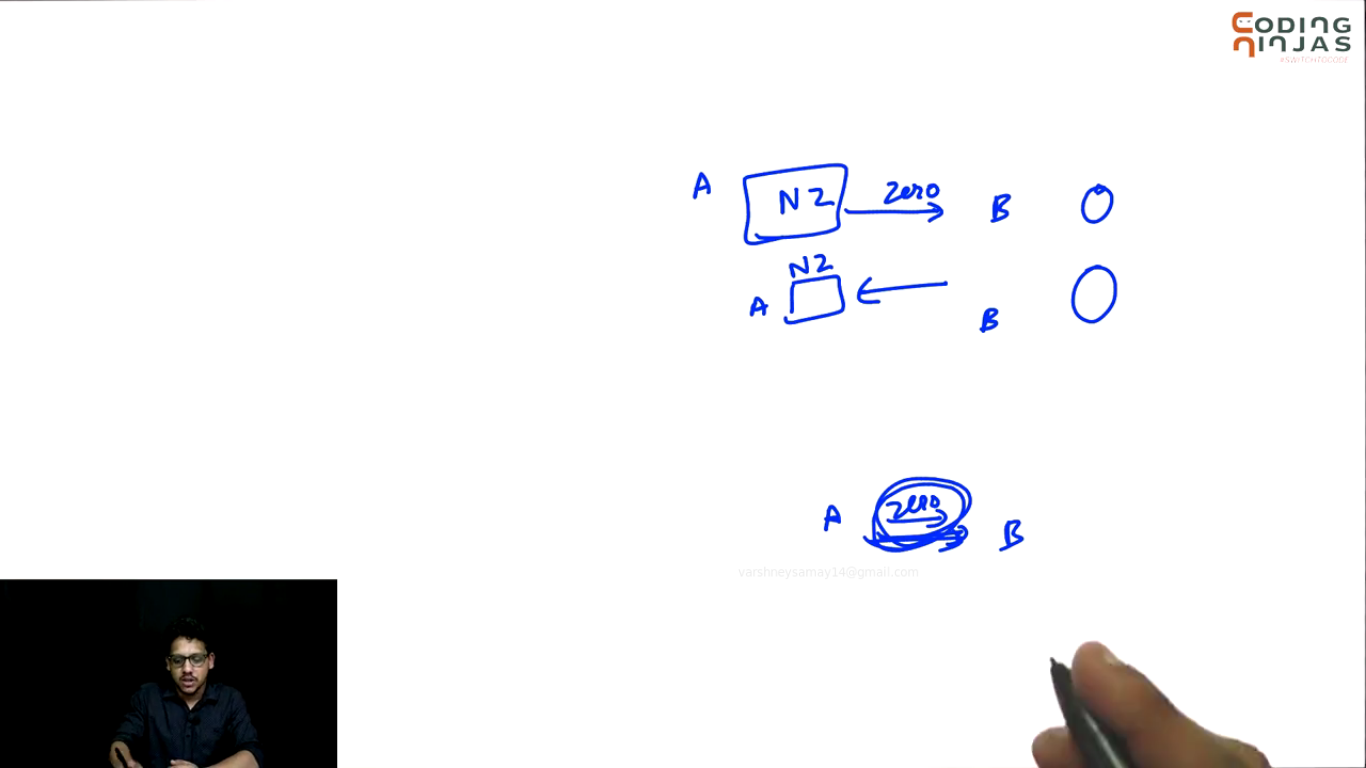 CODING
NINJAS
#SWITCHTOCODE
A NZ zero B
NZ
A B
A zero B
varshneysamay14@gmail.com